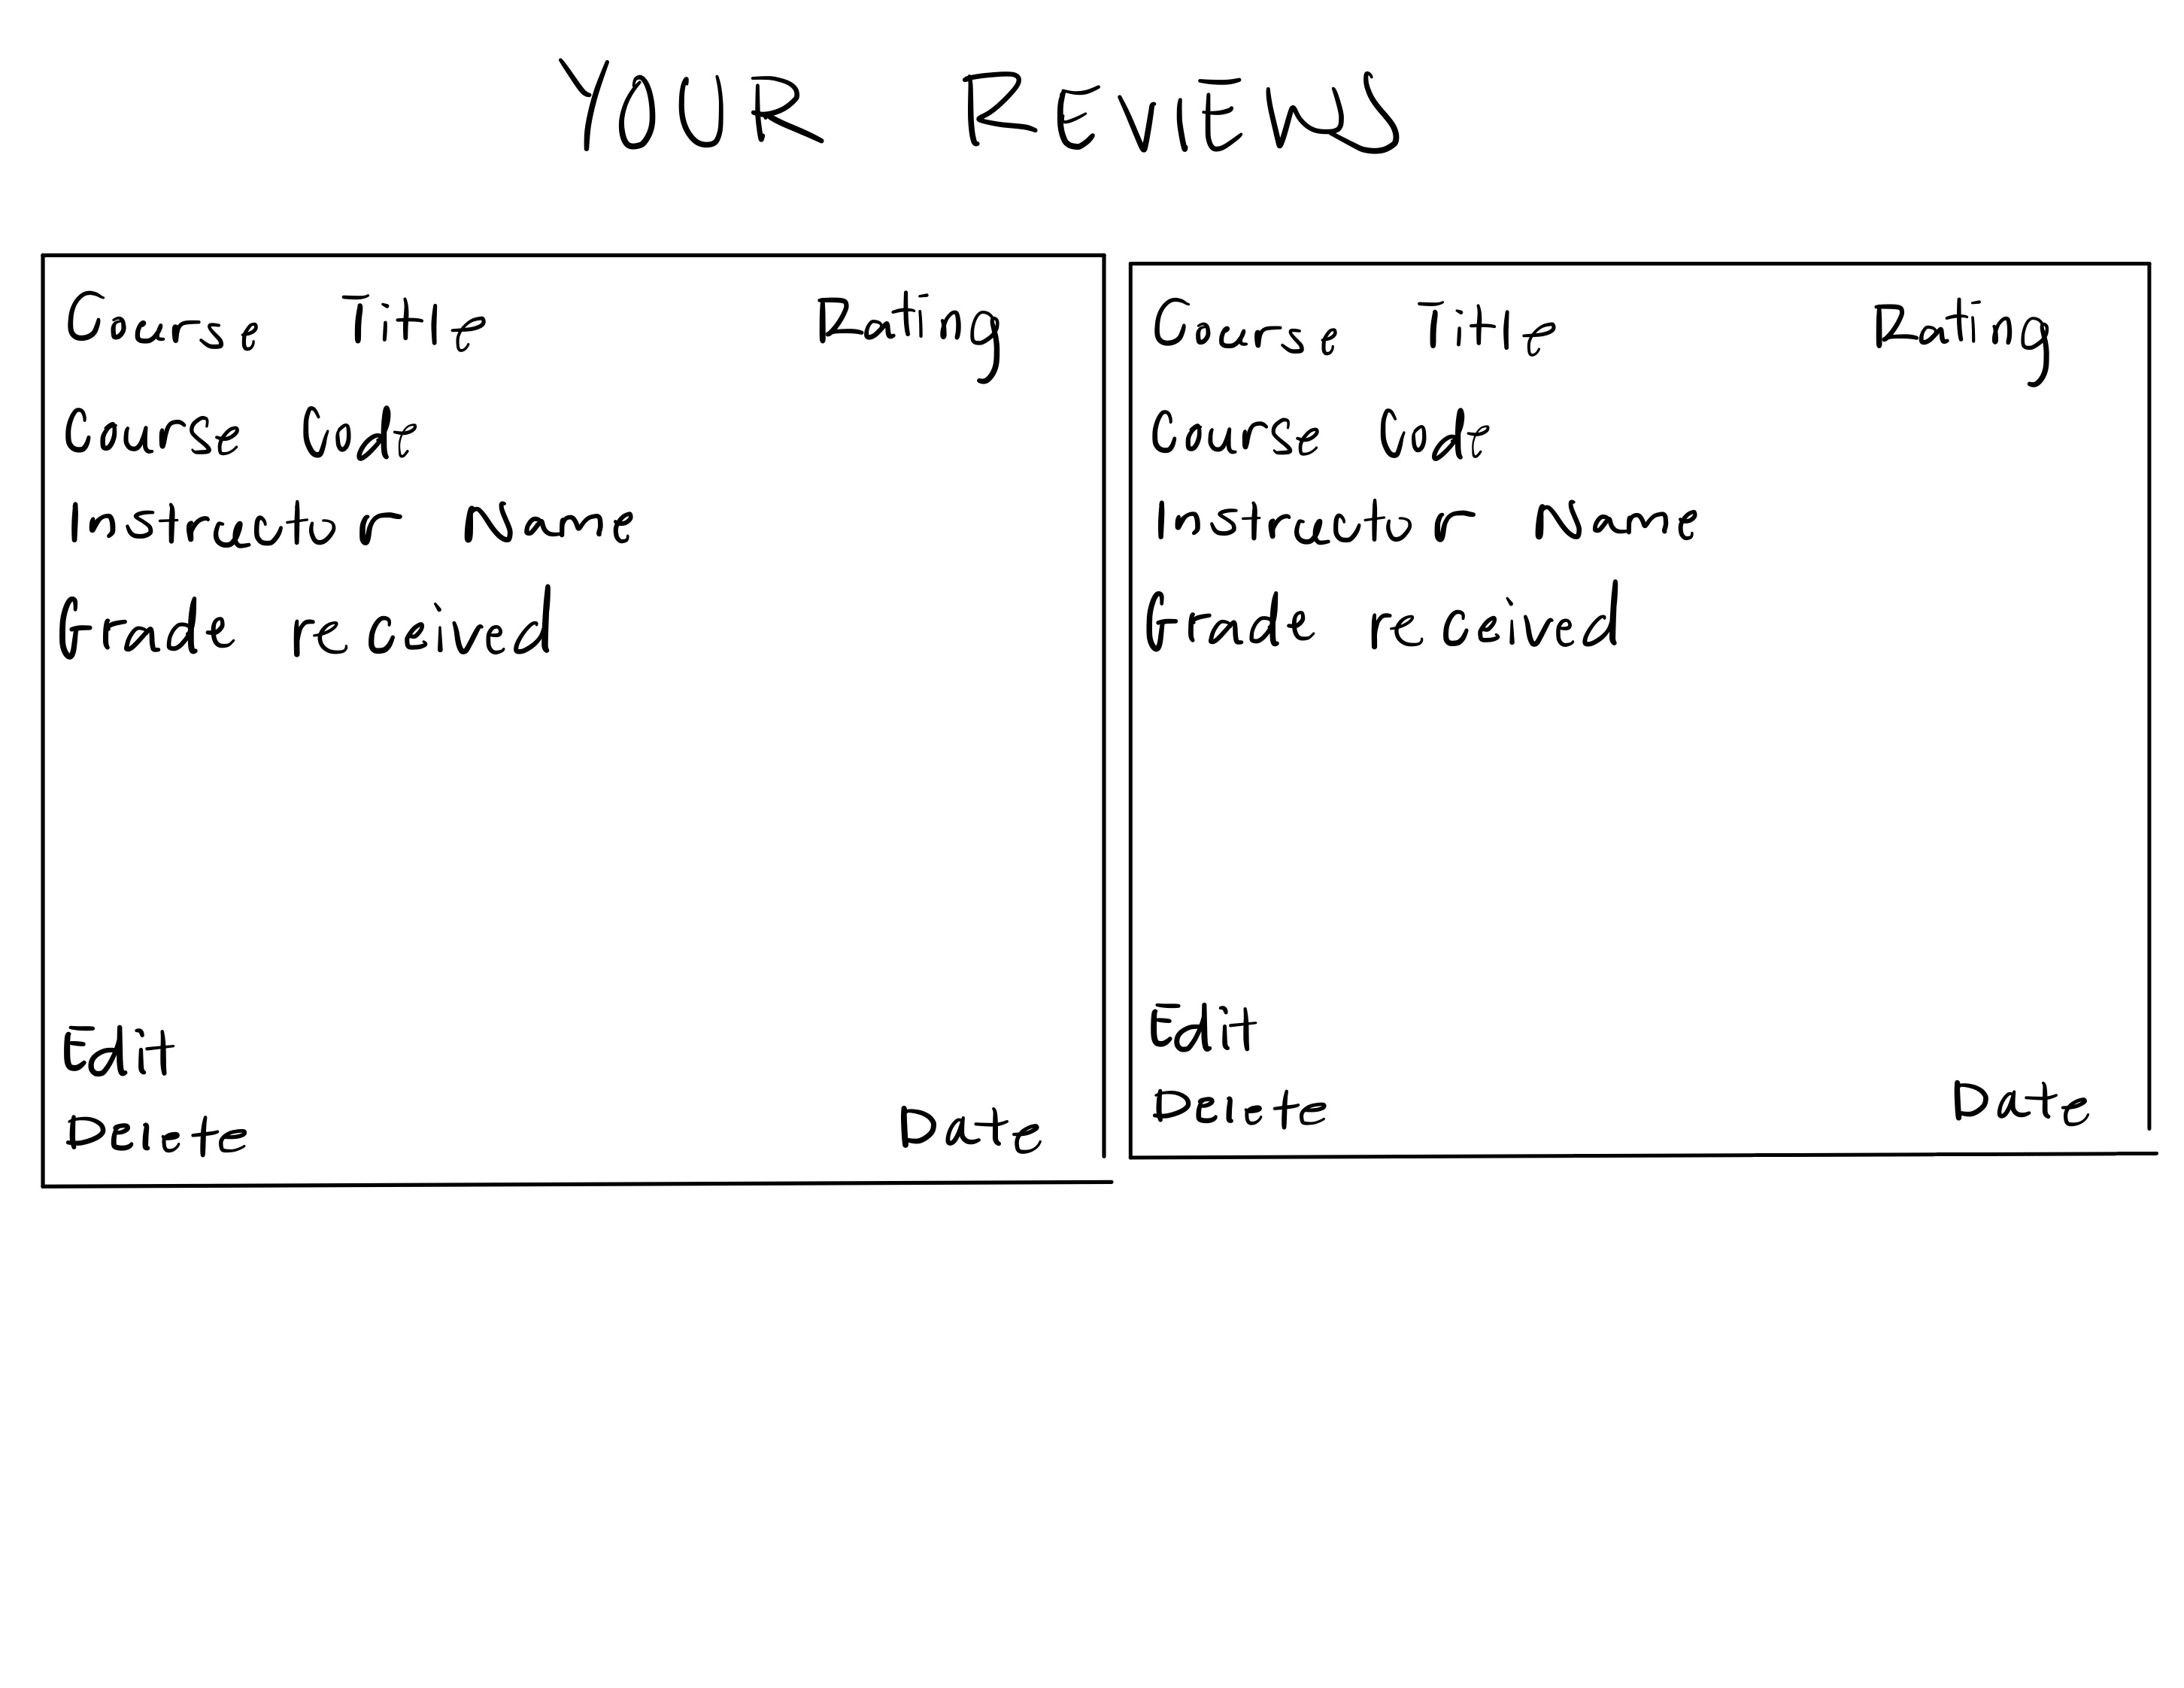 YOUR REVIEWS
Course Title Rating
Course Code
Instructor Name
Grade received
Edit
Delete Date
Course Title Rating
Course Code
Instructor Name
Grade received
Edit
Delete Date